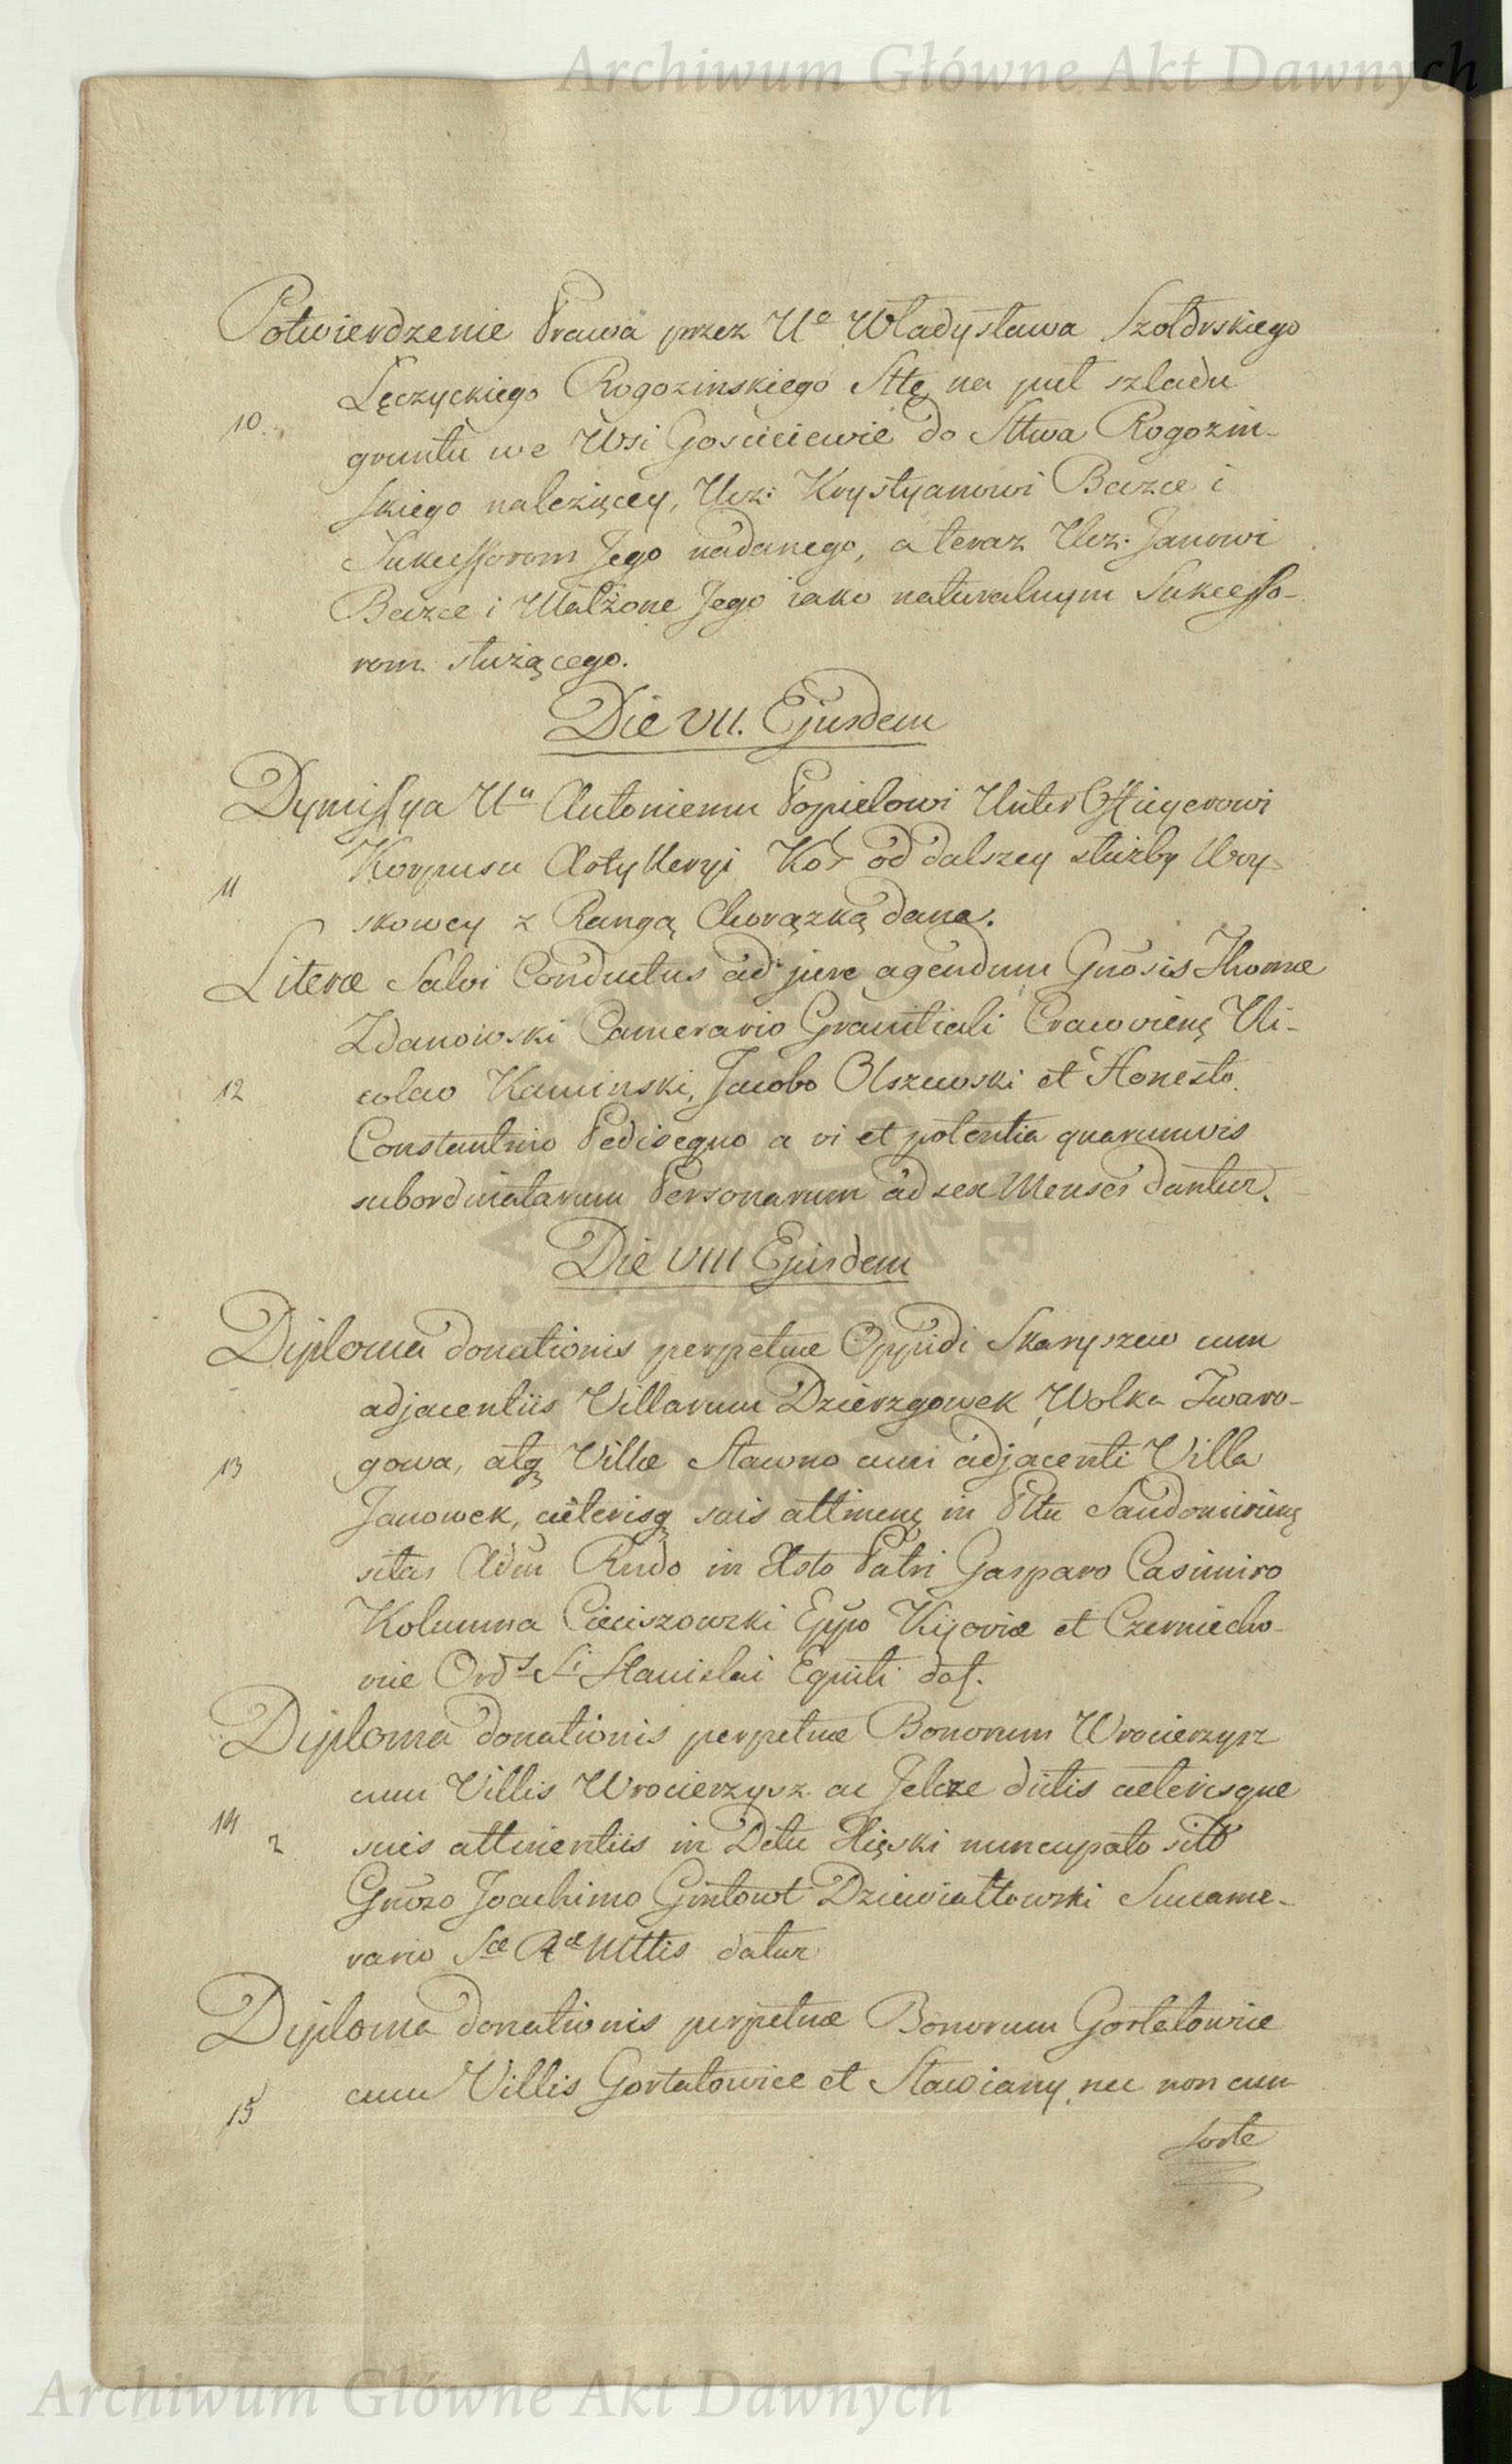 Archiwum Główne Akt Dawnych
Potwierdzenie Prawa przez Uo Władysława Szołdrskiego
Łęczyckiego Rogozinskiego Sttę na puł szladu
10 gruntu we Wsi Gościeiewie do Sttwa Rogozin-
skiego należącey, Ucz: Krystyanowi Bauzce i
Sukcessorom Jego nadanego, a teraz Ucz: Janowi
Bauzce i Małżone Jego iako naturalnym Sukcesso-
rom służącego.
Die VII. Ejusdem
Dymissya Uu Antoniemu Popielowi Unter Officyerowi
Korpusu Artylleryi Kor od dalszey służby Woy-
11 skowey z Rangą Chorązką dana.
Literæ Salvi Conductus ad jure agendum Gnosis Thomæ
Zdanowski Camerario Granitiali Cracovienę Ni-
12 colao Kaminski, Jacobo Olszewski et Honesto
Constantino Pedisequo a vi et potentia quarumvis
subordinatarum Personarum ad sex Menses dantur.
Die VIII Ejusdem
Diploma donationis perpetuæ Oppidi Skaryszew cum
adjacentiis Villarum Dzierzgowek, Wolka Twaro-
13 gowa, atq Villæ Stawno cum adjacenti Villa
Janowek, cæterisq suis attinenę in Pttu Sandomirienę
sitas Adm Rndo in Xsto Patri Gasparo Casimiro
Kolumna Cieciszowski Eppo Kijoviæ et Czerniecho-
viæ Ords Si Stanislai Equiti dat.
Diploma donationis perpetuæ Bonorum Wrocierzysz
cum Villis Wrocierzysz ac Jelcze dictis cæterisque
14 2 suis attinentiis in Dttu Xięski nuncupato sitt
Gnoso Joachimo Gintowt Dziewiałtowski Succame-
rario Sæ Ræ Mttis datur
Diploma donationis perpetuæ Bonorum Gortatowice
15 cum Villis Gortatowice et Stawiany, nec non cum
sorte
Archiwum Główne Akt Dawnych